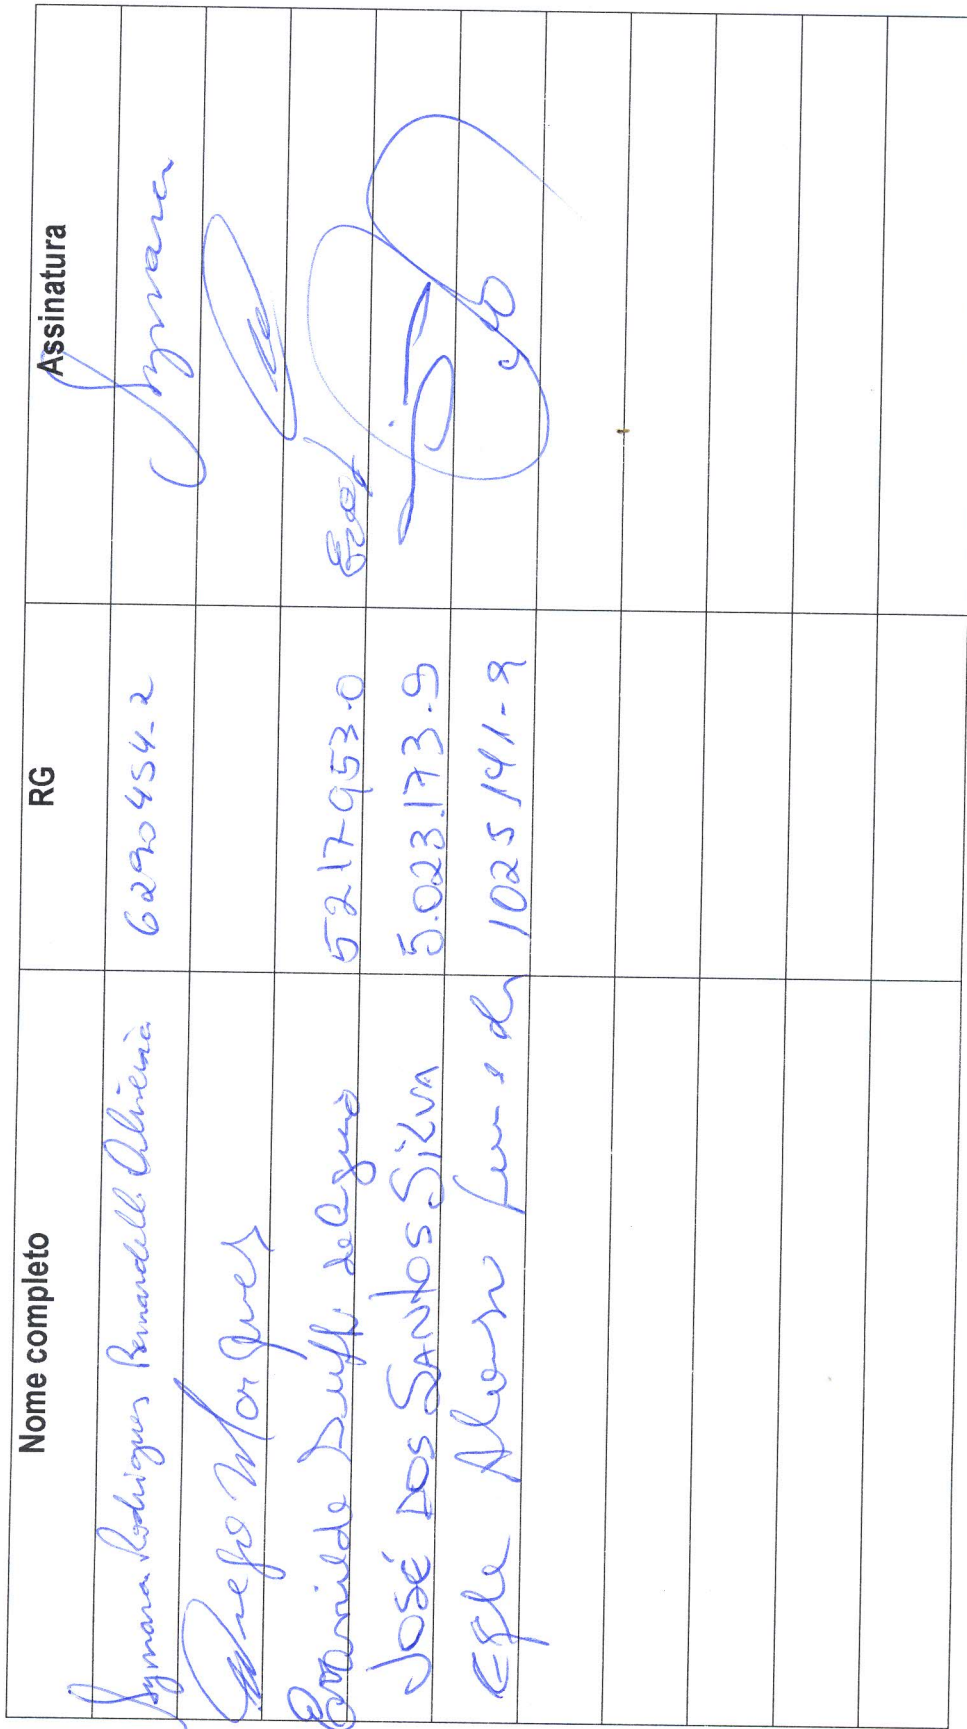 Nome completo RG Assinatura
Symara Rodrigues Bernardelli Oliveira 6290454-2 Symara
Diego Marques
Eronilde Duffi de Aquino 5217-953-0
JOSÉ DOS SANTOS SILVA 5.023.173-9
Egle 1025141-9